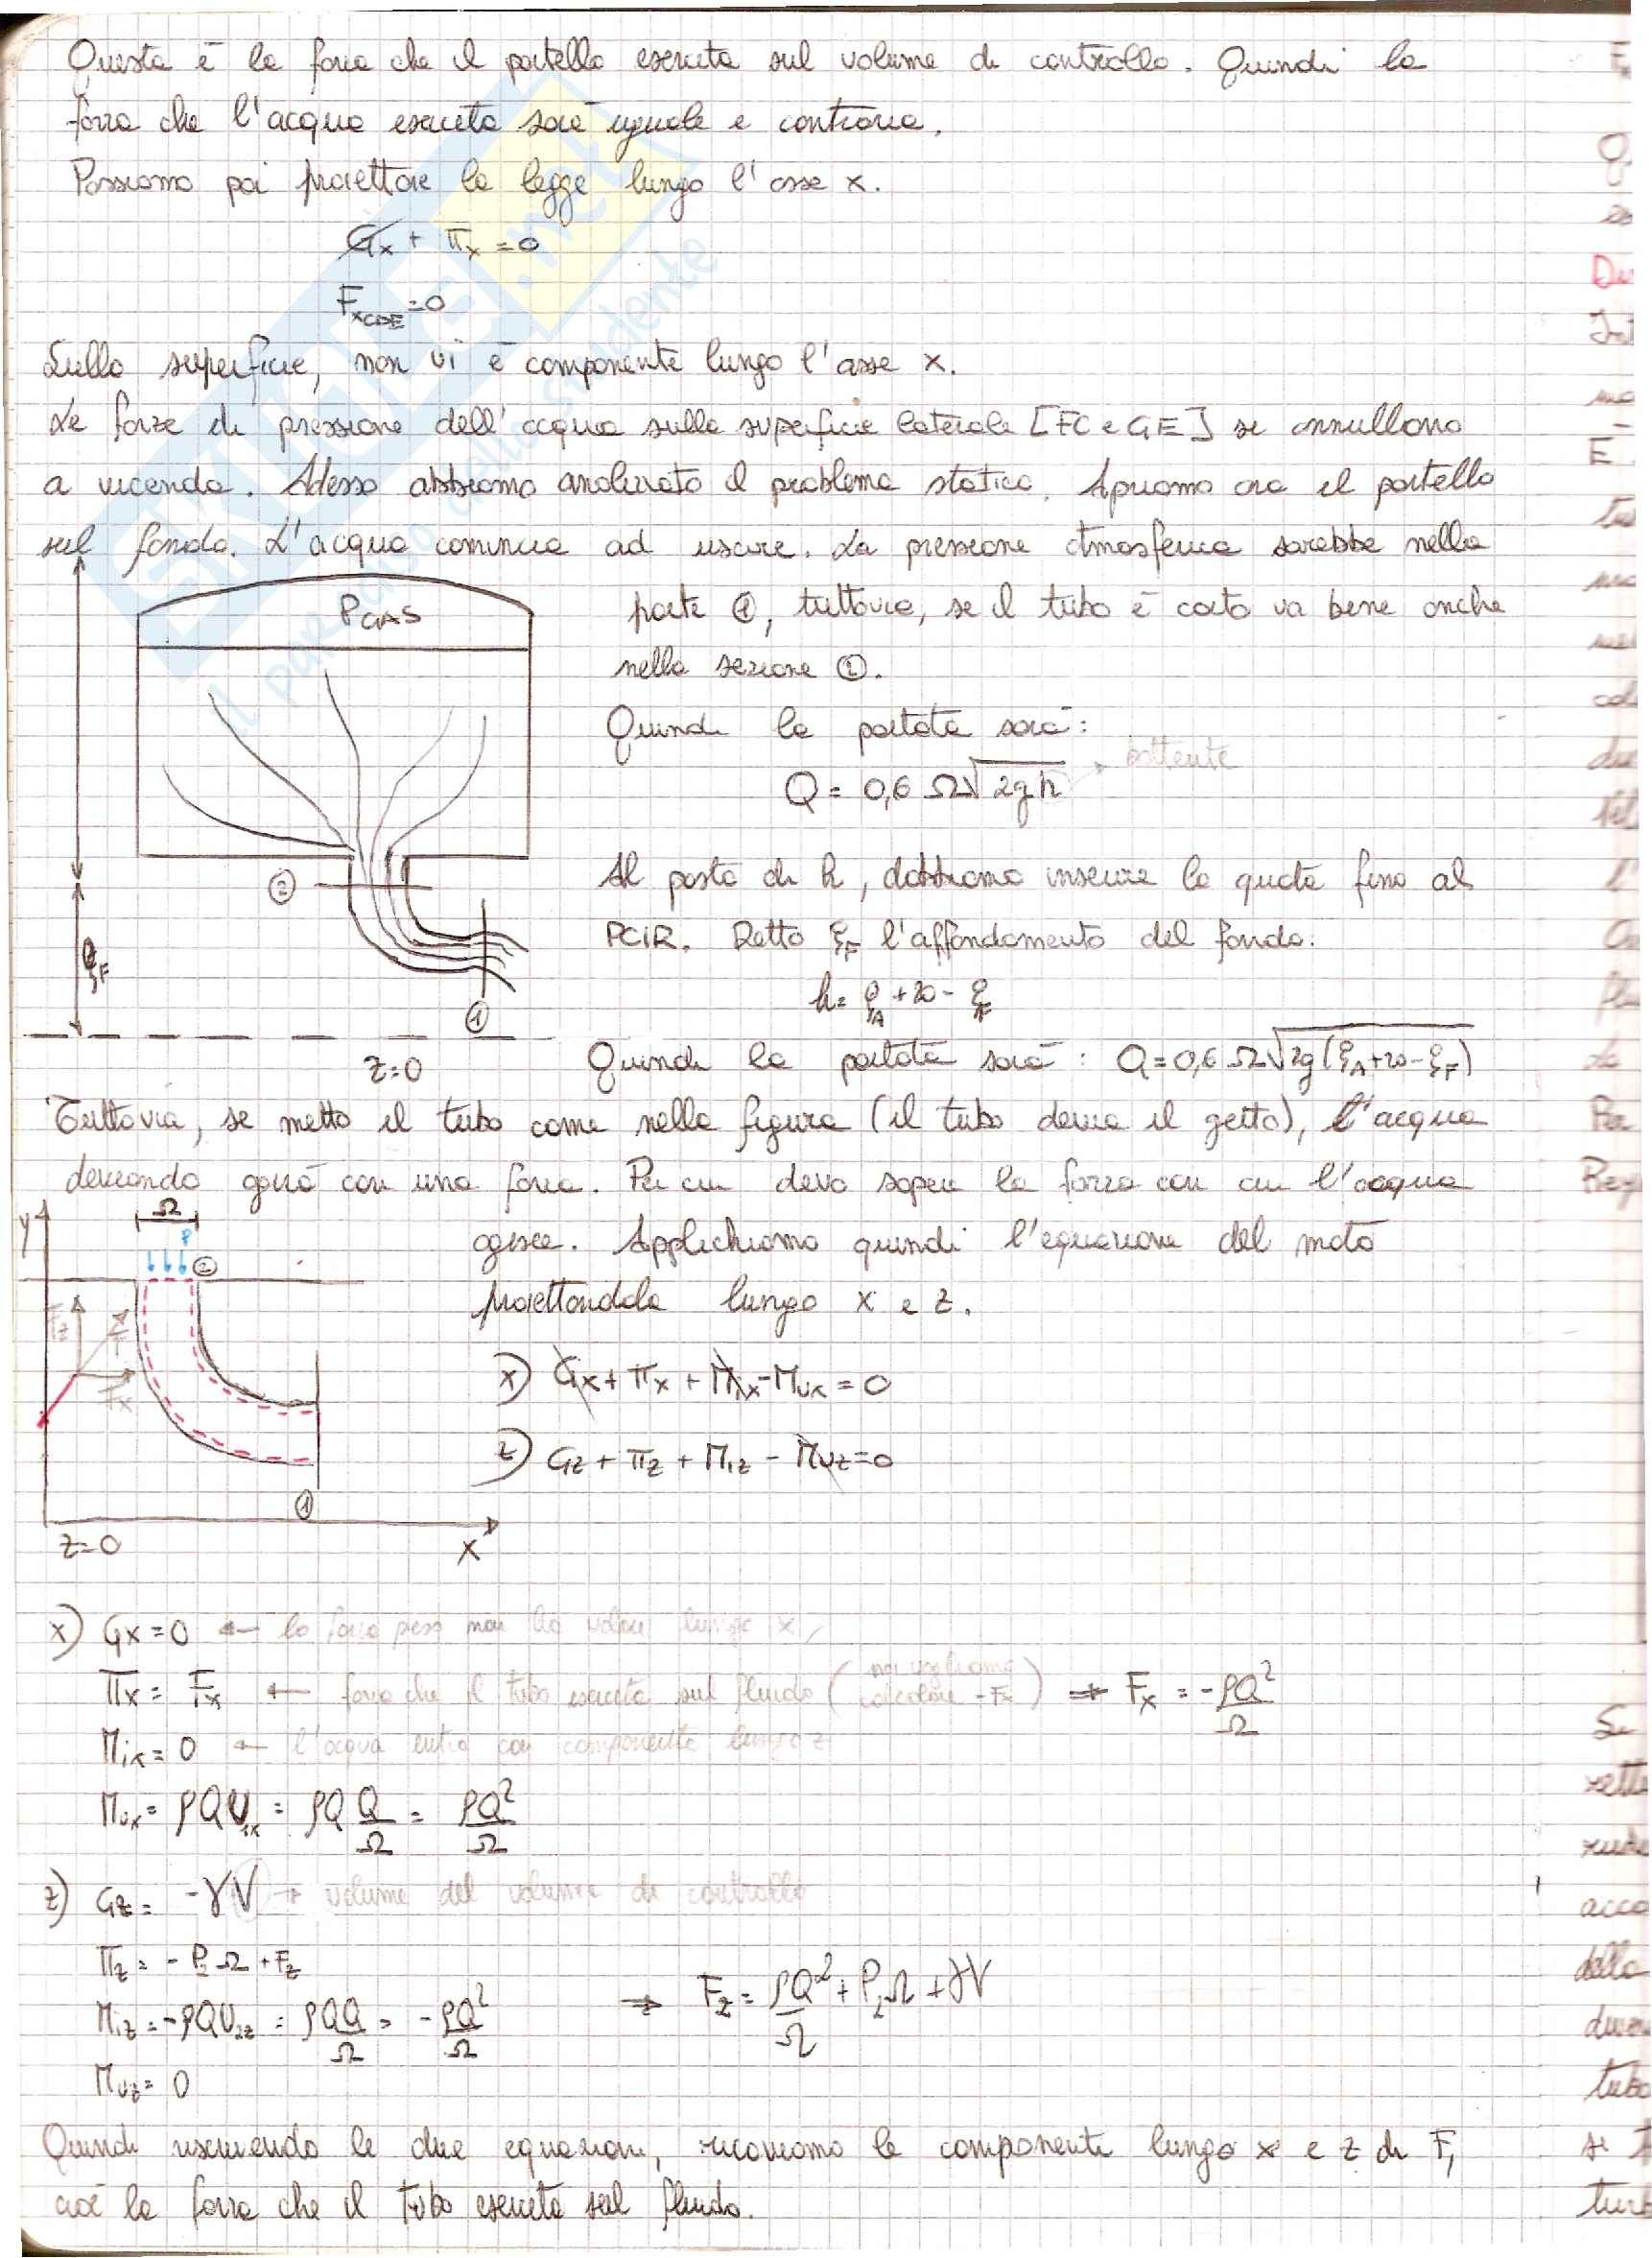 Questa è la forza che il portello esercita sul volume di controllo. Quindi la
forza che l'acqua esercita sarà uguale e contraria.
Possiamo poi proiettare la legge lungo l'asse x.
Gx + Πx = 0
FxCDE = 0
Sulla superficie, non vi è componente lungo l'asse x.
Le forze di pressione dell'acqua sulla superficie laterale [FC e GE] si annullano
a vicenda. Adesso abbiamo analizzato il problema statico. Apriamo ora il portello
sul fondo. L'acqua comincia ad uscire. La pressione atmosferica sarebbe nella
parte ①, tuttavia, se il tubo è corto va bene anche
nella sezione ②.
PGAS
Quindi la portata sarà:
Q = 0,6 Ω√2gh → battente
②
Al posto di h, dobbiamo inserire la quota fino al
PCIR. Detto ξF l'affondamento del fondo:
ξF
h = ξA + 20 - ξF
①
z=0
Quindi la portata sarà: Q = 0,6 Ω√2g(ξA+20-ξF)
Tuttavia, se metto il tubo come nella figura (il tubo devia il getto), l'acqua
deviando agirà con una forza. Per cui devo sapere la forza con cui l'acqua
agisce. Applichiamo quindi l'equazione del moto
proiettandola lungo x e z.
y
Ω
P
②
Fz
F
Fx
x) Gx + Πx + Mix - Mux = 0
z) Gz + Πz + Miz - Muz = 0
①
z=0
x
x) Gx = 0 ← la forza peso non ha valore lungo x
Πx = Fx ← forza che il tubo esercita sul fluido (noi vogliamo calcolare -Fx) ⇒ Fx = -ρQ²/Ω
Mix = 0 ← l'acqua entra con componente lungo z
Mux = ρQU1x = ρQ Q/Ω = ρQ²/Ω
z) Gz = -γV → volume del volume di controllo
Πz = -P2Ω + Fz
Miz = -ρQU2z = ρQQ/Ω = -ρQ²/Ω ⇒ Fz = ρQ²/Ω + P2Ω + γV
Muz = 0
Quindi riscrivendo le due equazioni, ricaviamo le componenti lungo x e z di F,
cioè la forza che il tubo esercita sul fluido.